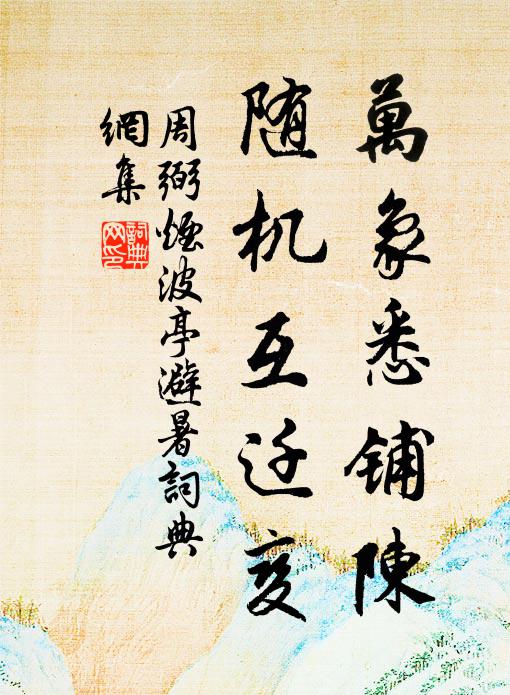 萬象悉铺陳
随机互迁变
周弼烟波亭避暑詞典
網集
詞典
网印